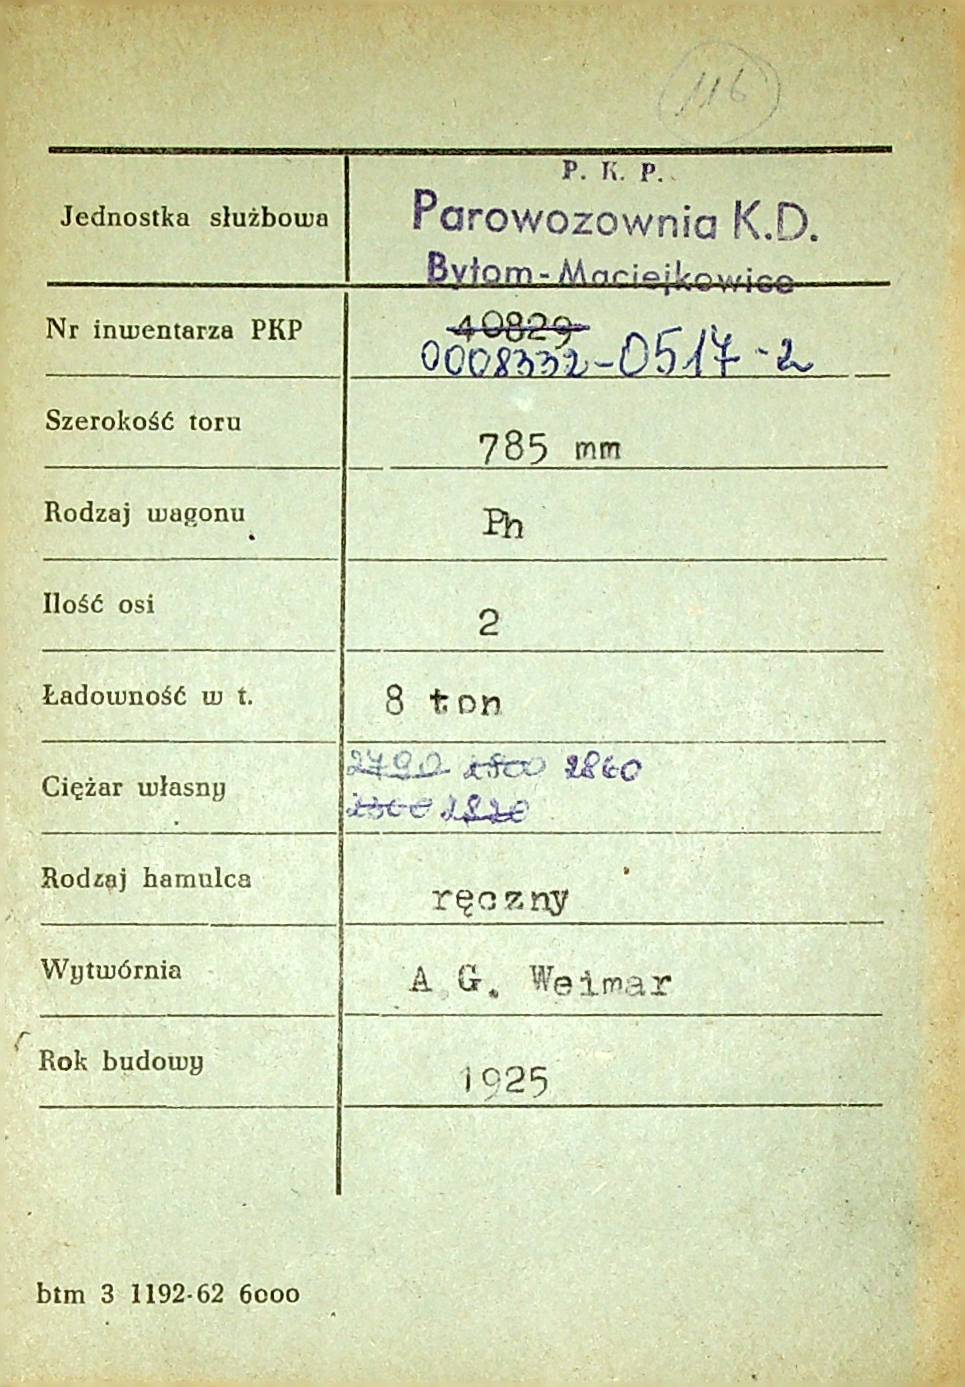 116
P. K. P.
Jednostka służbowa
Parowozownia K.D.
Bytom-Maciejkowice
Nr inwentarza PKP
40829
0008332-0517-2
Szerokość toru
785 mm
Rodzaj wagonu
Ph
Ilość osi
2
Ładowność w t.
8 ton
2790 2800 2860
Ciężar własny
2820
Rodzaj hamulca
ręczny
Wytwórnia
A G. Weimar
Rok budowy
1925
btm 3 1192-62 6000